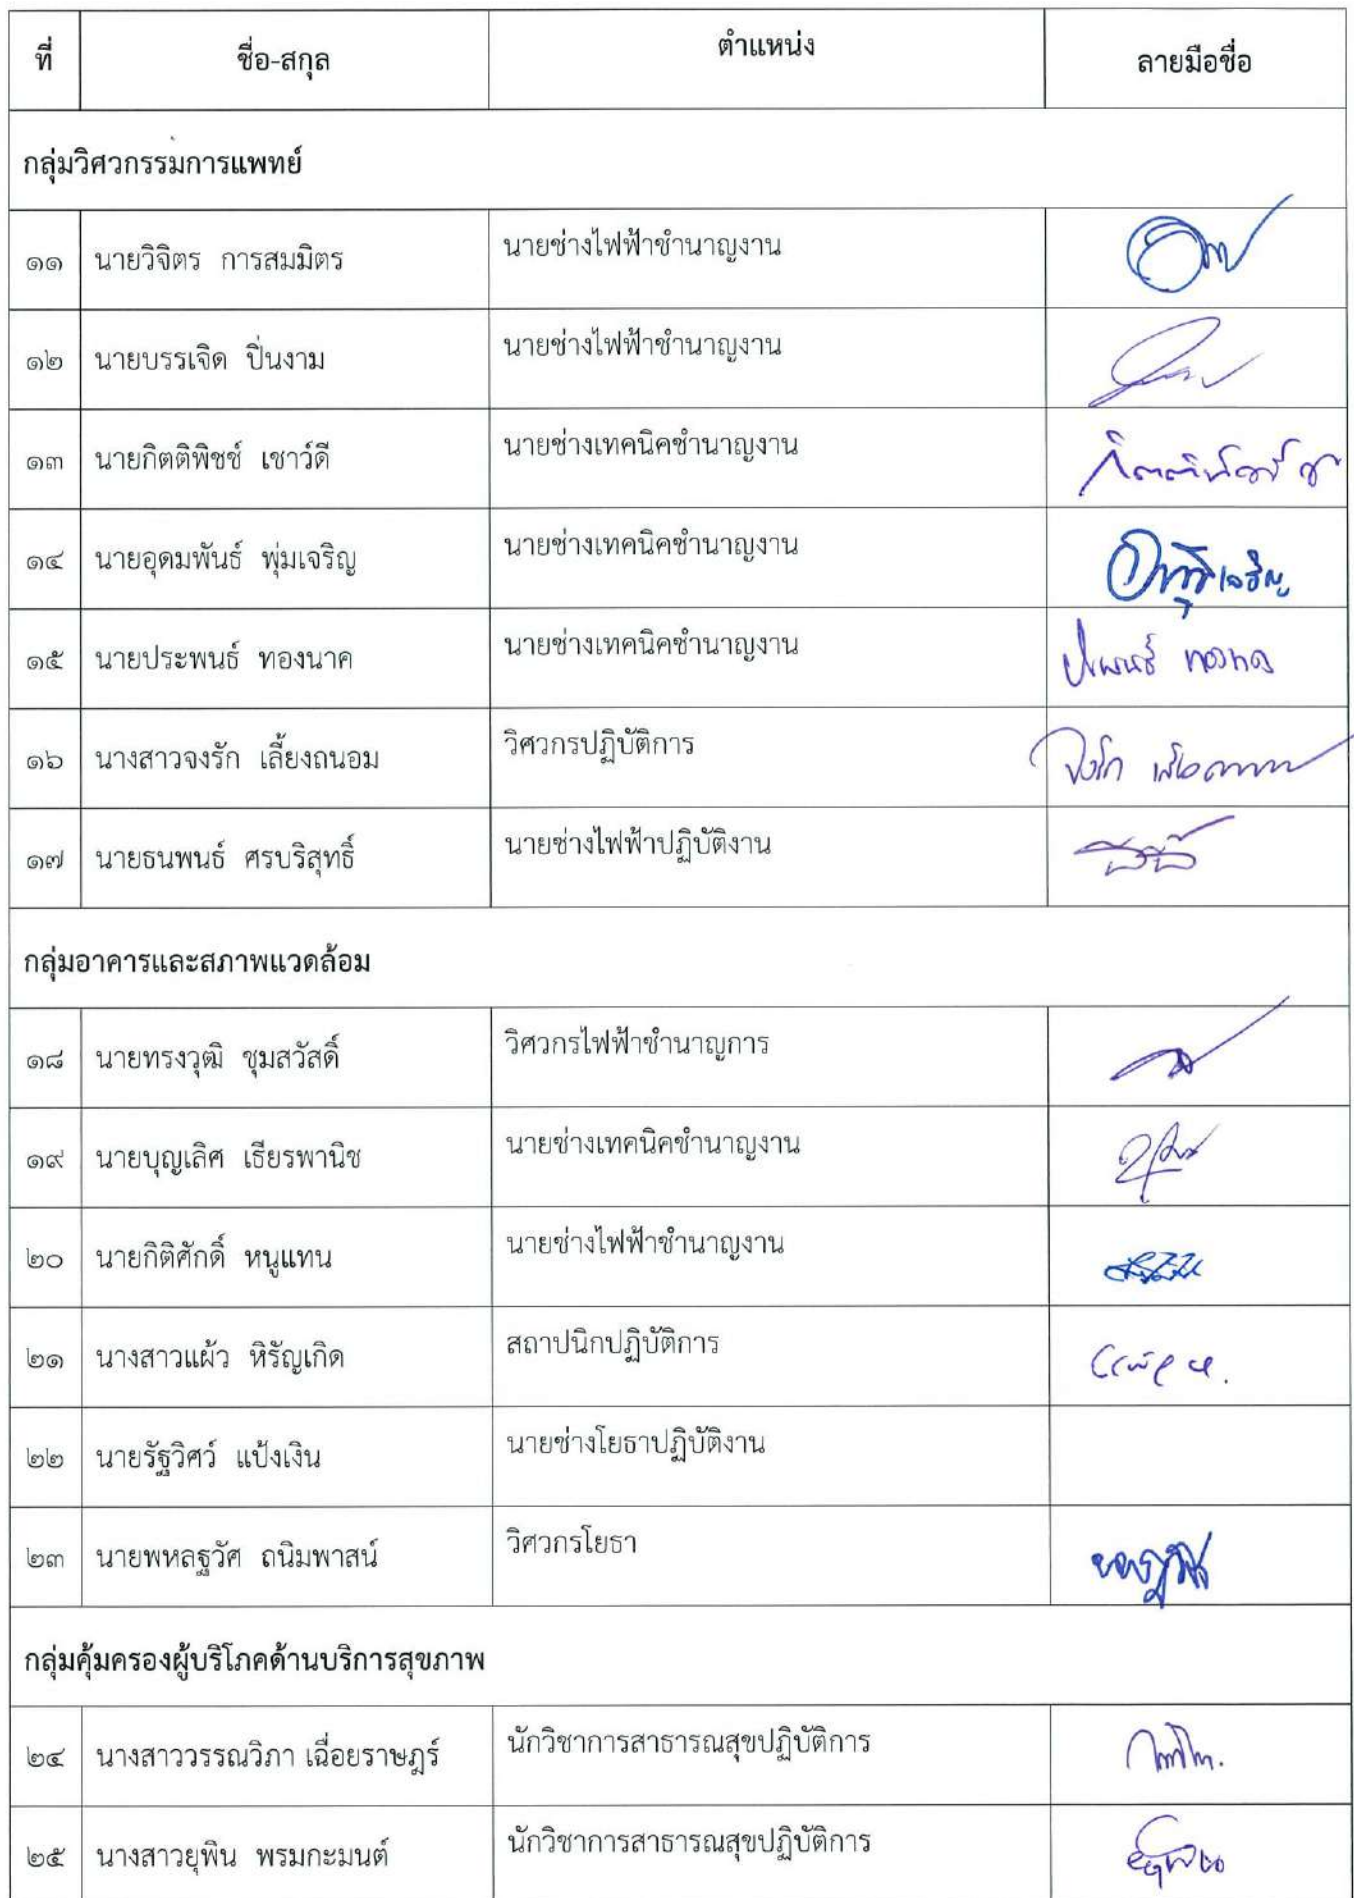 ที่ ชื่อ-สกุล ตำแหน่ง ลายมือชื่อ
กลุ่มวิศวกรรมการแพทย์
๑๑ นายวิจิตร การสมมิตร นายช่างไฟฟ้าชำนาญงาน
๑๒ นายบรรเจิด ปิ่นงาม นายช่างไฟฟ้าชำนาญงาน
๑๓ นายกิตติพิชช์ เชาว์ดี นายช่างเทคนิคชำนาญงาน
๑๔ นายอุดมพันธ์ พุ่มเจริญ นายช่างเทคนิคชำนาญงาน
๑๕ นายประพนธ์ ทองนาค นายช่างเทคนิคชำนาญงาน
๑๖ นางสาวจงรัก เลี้ยงถนอม วิศวกรปฏิบัติการ
๑๗ นายธนพนธ์ ศรบริสุทธิ์ นายช่างไฟฟ้าปฏิบัติงาน
กลุ่มอาคารและสภาพแวดล้อม
๑๘ นายทรงวุฒิ ชุมสวัสดิ์ วิศวกรไฟฟ้าชำนาญการ
๑๙ นายบุญเลิศ เธียรพานิช นายช่างเทคนิคชำนาญงาน
๒๐ นายกิติศักดิ์ หนูแทน นายช่างไฟฟ้าชำนาญงาน
๒๑ นางสาวแผ้ว หิรัญเกิด สถาปนิกปฏิบัติการ
๒๒ นายรัฐวิศว์ แป้งเงิน นายช่างโยธาปฏิบัติงาน
๒๓ นายพหลฐวัศ ถนิมพาสน์ วิศวกรโยธา
กลุ่มคุ้มครองผู้บริโภคด้านบริการสุขภาพ
๒๔ นางสาววรรณวิภา เฉื่อยราษฎร์ นักวิชาการสาธารณสุขปฏิบัติการ
๒๕ นางสาวยุพิน พรมกะมนต์ นักวิชาการสาธารณสุขปฏิบัติการ